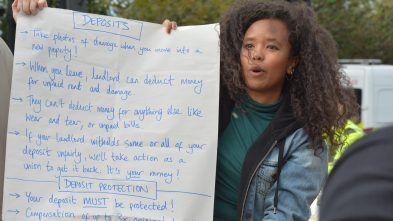 DEPOSITS
→ Take photos of damage when you move into a
new property!
→ When you leave, landlord can deduct money
for unpaid rent and damage.
→ They can't deduct money for anything else like
wear and tear, or unpaid bills.
→ If your landlord witholds some or all of your
deposit unfairly, we'll take action as a
union to get it back. It's YOUR money!
DEPOSIT PROTECTION
→ Your deposit MUST be protected!
→ Compensation of up to 3x